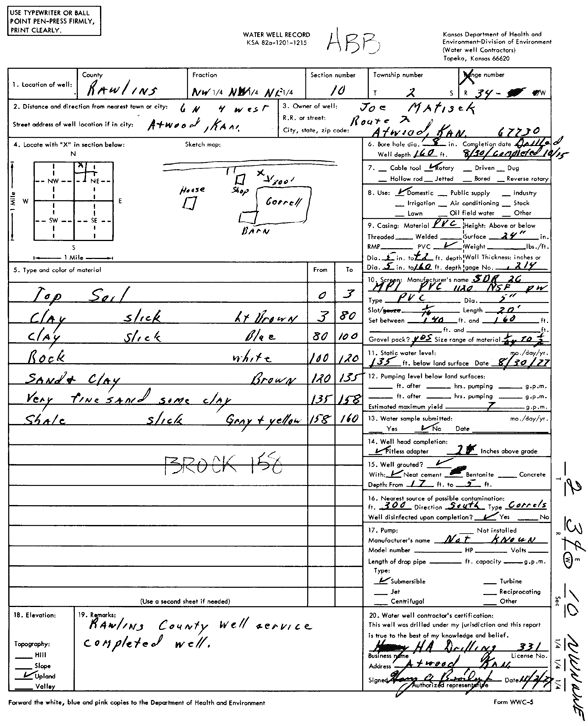 USE TYPEWRITER OR BALL
POINT PEN-PRESS FIRMLY,
PRINT CLEARLY.
WATER WELL RECORD
KSA 82a-1201-1215
ABB
Kansas Department of Health and
Environment-Division of Environment
(Water well Contractors)
Topeka, Kansas 66620
1. Location of well: County Rawlins
Fraction NW 1/4 NW 1/4 NE 1/4
Section number 10
Township number T 2 S
Range number R 34 W
2. Distance and direction from nearest town or city: 6 N 4 west
Street address of well location if in city: Atwood, Kan.
3. Owner of well: Joe Matisek
R.R. or street: Route 2
City, state, zip code: Atwood, Kan. 67730
4. Locate with "X" in section below:
Sketch map:
N
NW NE
W E
SW SE
S
1 Mile
1 Mile
X
House
Shop
300'
Correll
BARN
6. Bore hole dia. 8 in. Completion date Drilled
Well depth 160 ft. 8/30/ completed 10/15
7. Cable tool ✓ Rotary Driven Dug
Hollow rod Jetted Bored Reverse rotary
8. Use: ✓ Domestic Public supply Industry
Irrigation Air conditioning Stock
Lawn Oil field water Other
9. Casing: Material PVC Height: Above or below
Threaded Welded Surface 24" in.
RMP PVC ✓ Weight lbs./ft.
Dia. 5 in. to +2 ft. depth Wall Thickness: inches or
Dia. 5 in. to 160 ft. depth gage No. .214
5. Type and color of material From To
Top Soil 0 3
Clay slick Lt Brown 3 80
Clay slick Blue 80 100
Rock white 100 120
Sand & Clay Brown 120 135
Very fine sand some clay 135 158
Shale slick Gray + yellow 158 160
BROCK 158
(Use a second sheet if needed)
10. Screen: Manufacturer's name SDR 26
MPI PVC 1120 NSF PW
Type PVC Dia. 5"
Slot/gauze Length 20'
Set between 140 ft. and 160 ft.
ft. and ft.
Gravel pack? yes Size range of material
11. Static water level: mo./day/yr.
135 ft. below land surface Date 8/30/77
12. Pumping level below land surfaces:
ft. after hrs. pumping g.p.m.
ft. after hrs. pumping g.p.m.
Estimated maximum yield 7 g.p.m.
13. Water sample submitted: mo./day/yr.
Yes ✓ No Date
14. Well head completion:
✓ Pitless adapter Inches above grade
15. Well grouted? ✓
With: ✓ Neat cement Bentonite Concrete
Depth: From 17 ft. to 5 ft.
16. Nearest source of possible contamination:
ft. 300 Direction South Type Correls
Well disinfected upon completion? ✓ Yes No
17. Pump: Not installed
Manufacturer's name Not Known
Model number HP Volts
Length of drop pipe ft. capacity g.p.m.
Type:
✓ Submersible Turbine
Jet Reciprocating
Centrifugal Other
18. Elevation:
Topography:
Hill
Slope
✓ Upland
Valley
19. Remarks:
Rawlins County Well service
completed well.
20. Water well contractor's certification:
This well was drilled under my jurisdiction and this report
is true to the best of my knowledge and belief.
HA Drilling 331
Business name License No.
Address Atwood, Kan.
Signed Date
Authorized representative
Forward the white, blue and pink copies to the Department of Health and Environment
Form WWC-5
T 2 R 34 E W Sec 10 1/4 1/4 1/4 NW NW NE